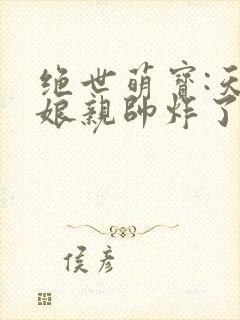 绝世萌寶:天
娘親帥炸了
侯彦